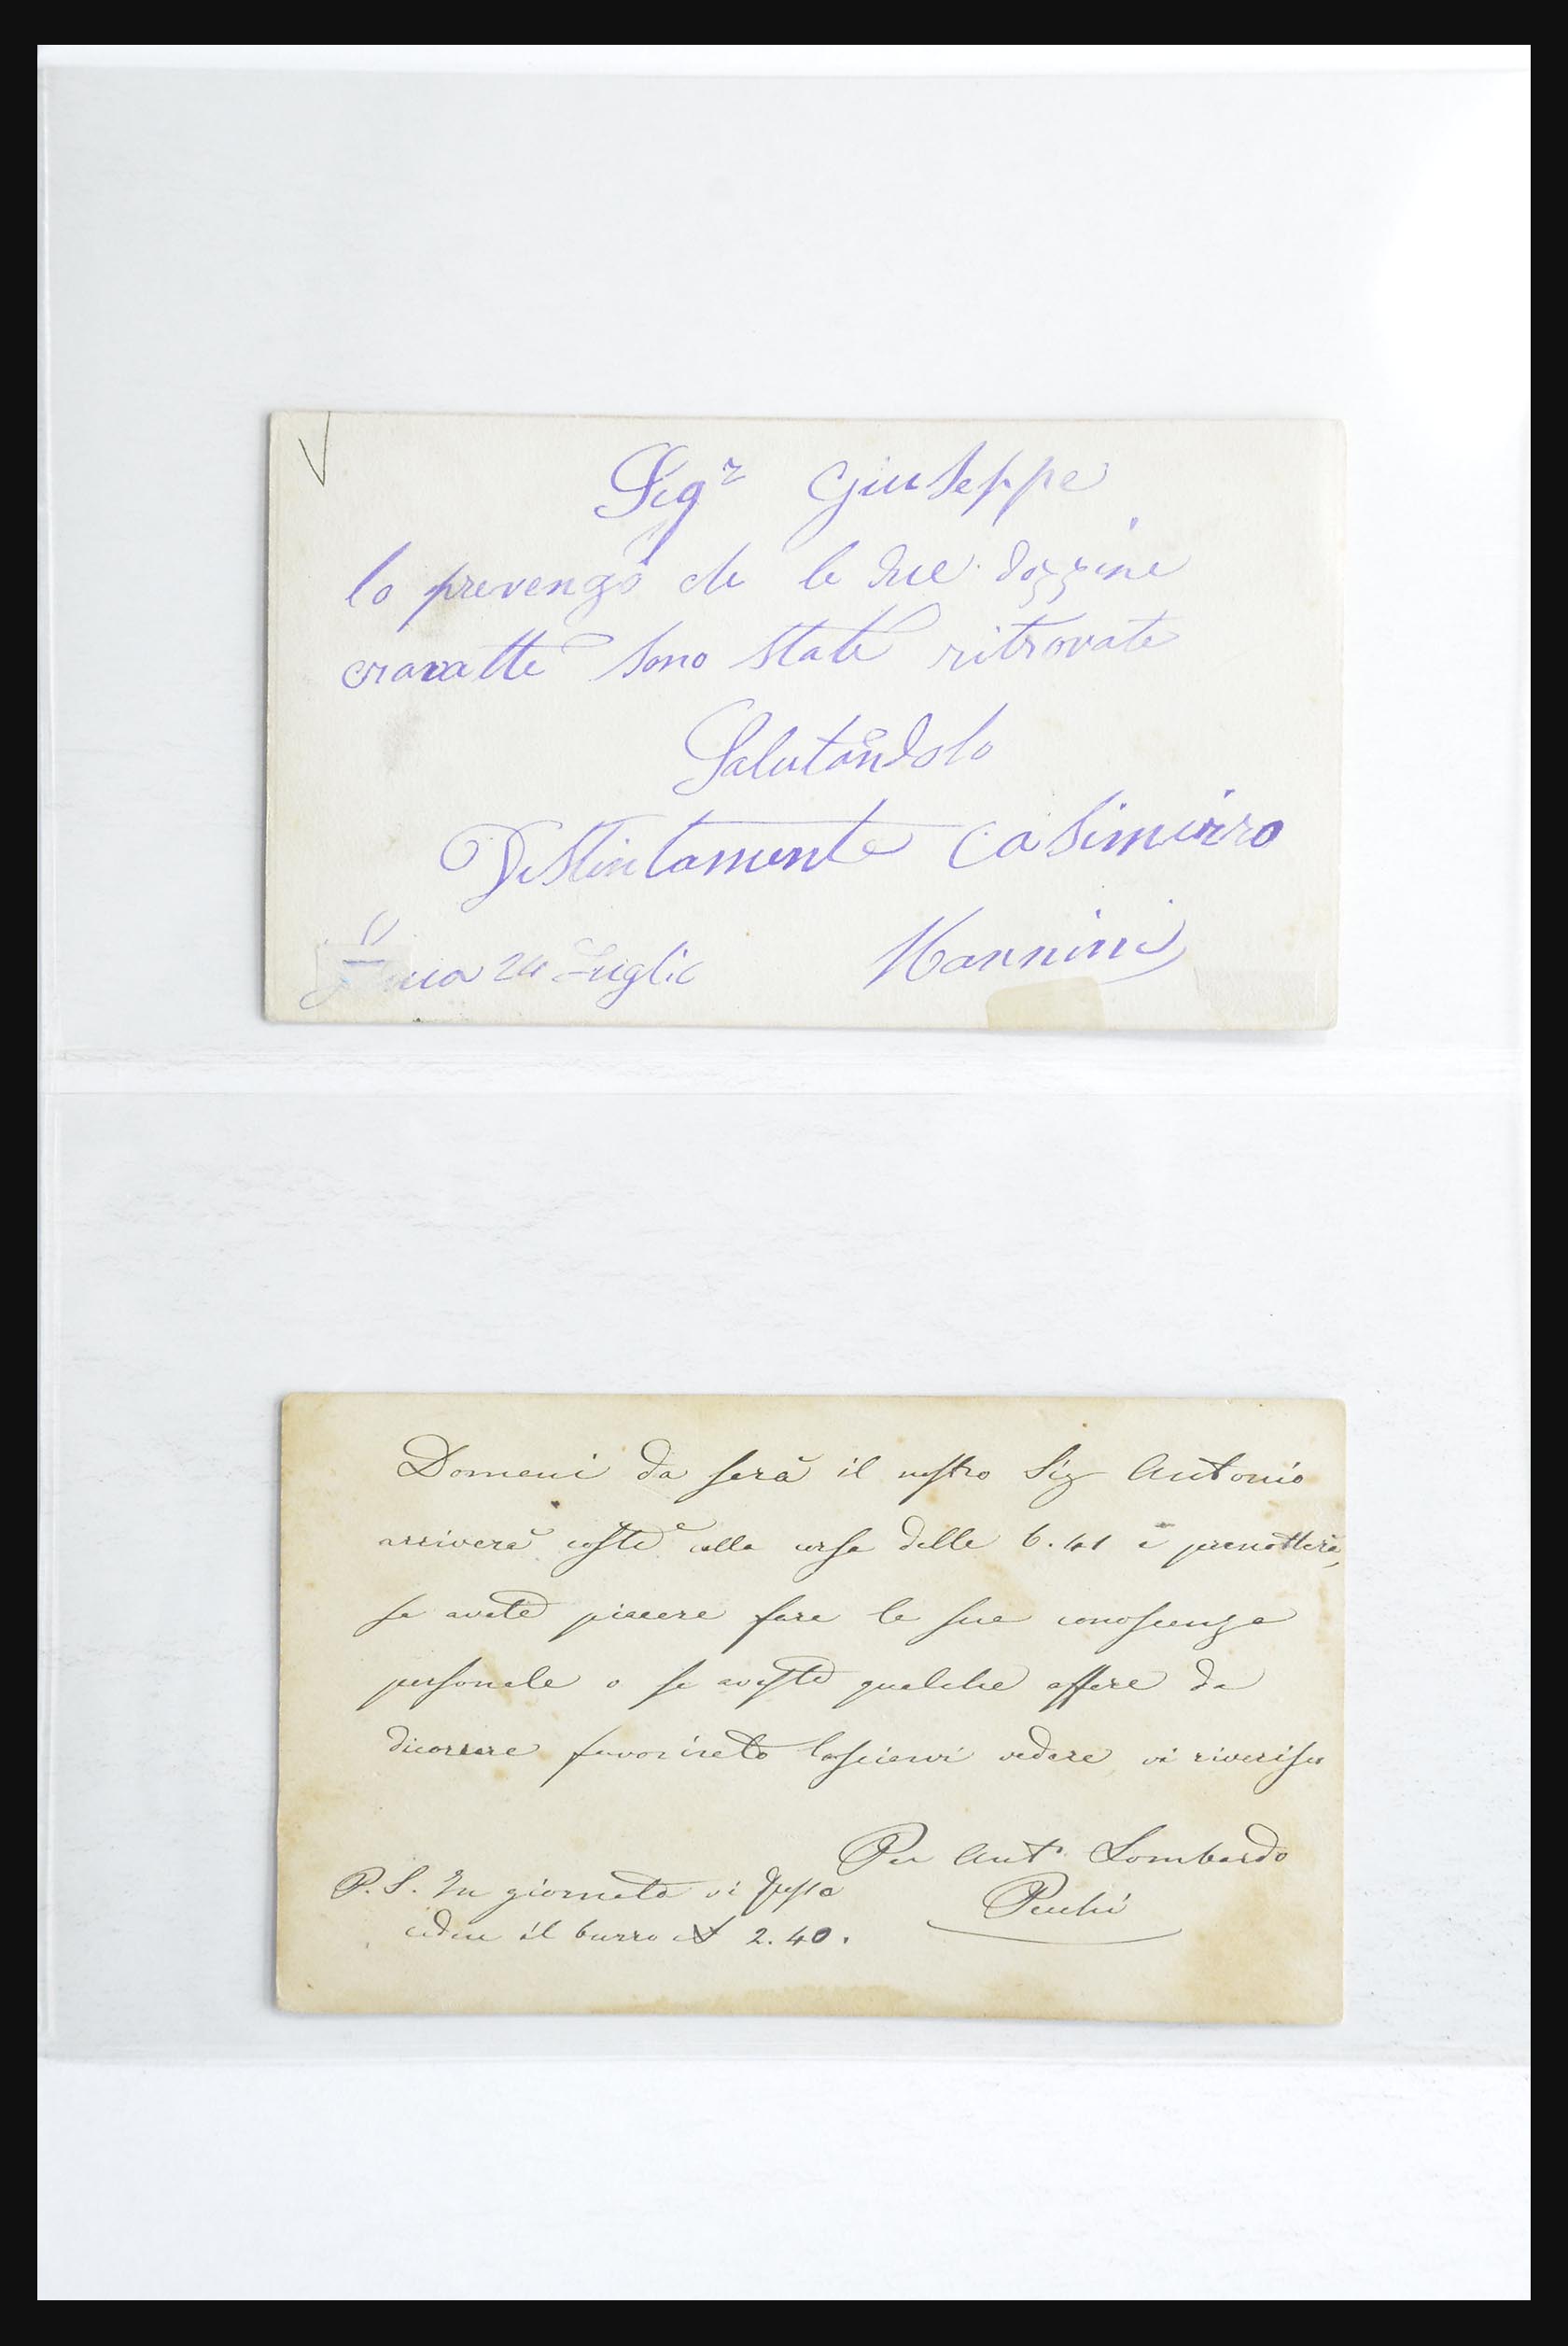 Sigr Giuseppe
lo prevengo che le due dozzine
cravatte sono state ritrovate
Salutandolo
Distintamente Casimirro
24 Luglio Nannini
Domani da sera il nostro Sig Antonio
arriverà costì colla corsa delle 6.41 e pernotterà,
se avete piacere fare la sua conoscenza
personale o se aveste qualche affare da
dicorrere favorirete lasciarvi vedere, vi riverisco
Per Anto Lombardo
P.S. In giornata vi
il burro 2.40.